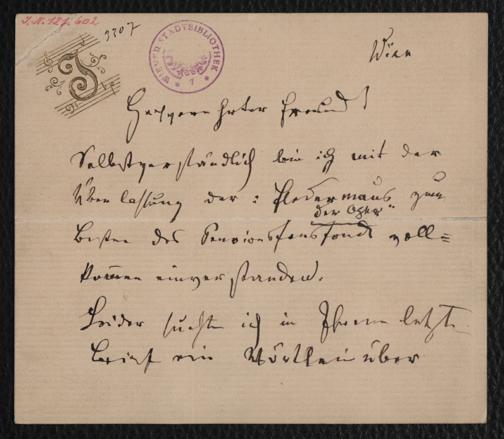 I.N. 127.602
3207
WIENER STADTBIBLIOTHEK
Wien
Hochgeehrter Freund!
Selbstverständlich bin ich mit der
Überlassung der: Fledermaus zum
der Oper
Besten des Pensionsfonds voll=
kommen einverstanden.
Leider suchte ich in Ihrem letzten
Brief ein Wörtlein über